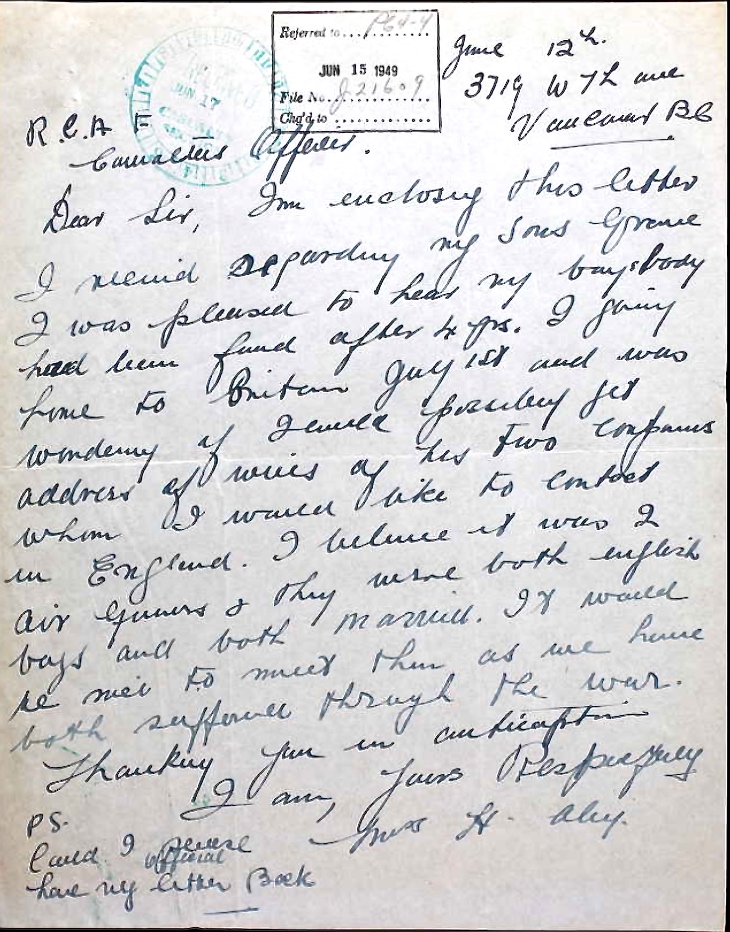 Referred to.... P64-4
JUN 15 1949
File No. J 21609
Chg'd to
RECEIVED
JUN 17
June 12th.
3719 W 7th ave
Vancouver BC
R.C.A.F.
Casualties Officer.
Dear Sir, Im enclosing this letter
I receivd Regarding my Sons Grave
I was pleased to hear my boys body
had been found after 4 yrs. I going
home to Britain July 1st and was
wondering if I could possibly get
address of wives of his two companions
whom I would like to contact
in England. I believe it was 2
air gunners & they were both english
boys and both married. It would
be nice to meet them as we have
both suffered through the war.
Thanking you in anticaption
I am, yours Respectfully
Mrs H.
PS.
Could I please
official
have my letter Back